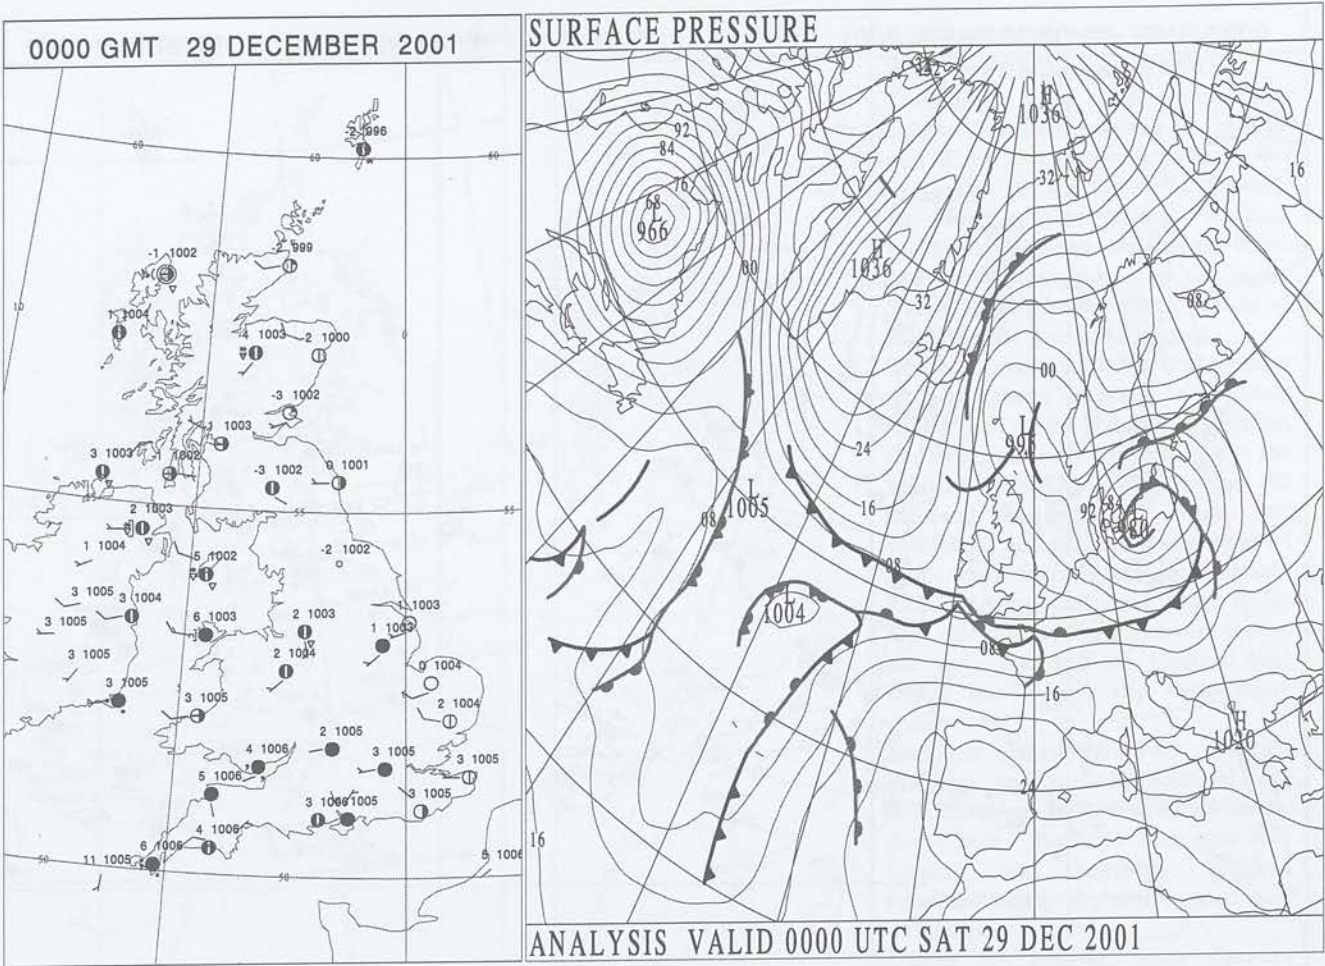 0000 GMT 29 DECEMBER 2001
-2 996
60
60
60
-2 999
-1 1002
10
1 1004
-4 1003
-2 1000
0
5
-3 1002
-1 1003
3 1003
-1 1002
-3 1002
0 1001
2 1003
55
55
1 1004
5 1002
-2 1002
3 1005
3 1004
1 1003
3 1005
6 1003
2 1003
1 1003
3 1005
2 1004
0 1004
3 1005
3 1005
2 1004
2 1005
4 1006
3 1005
3 1005
5 1006
3 1006
1005
3 1005
4 1006
6 1006
11 1005
50
50
1006
SURFACE PRESSURE
H
1036
92
84
76
68
L
966
16
32
H
1036
32
00
08
00
L
24
L
1005
08
16
92
84
980
08
L
1004
08
16
H
1020
24
16
ANALYSIS VALID 0000 UTC SAT 29 DEC 2001